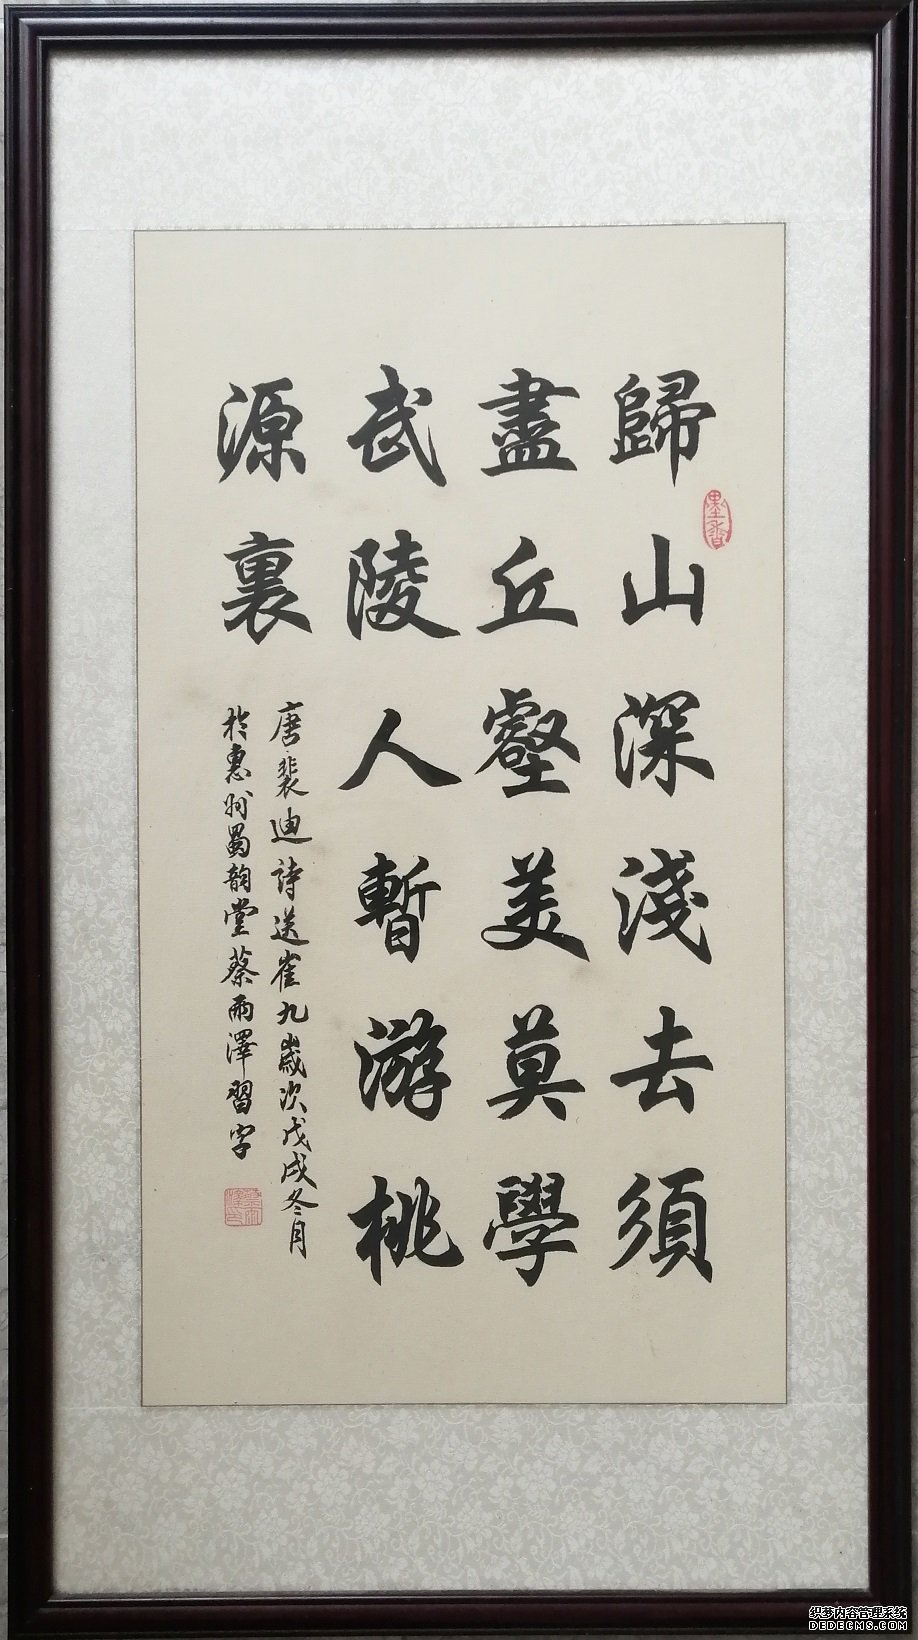 歸山深淺去須
盡丘壑美莫學
武陵人暫游桃
源裏
唐裴迪詩送崔九歲次戊戌冬月
於惠州蜀韵堂蔡雨澤習字
墨香
织梦内容管理系统
DEDECMS.COM